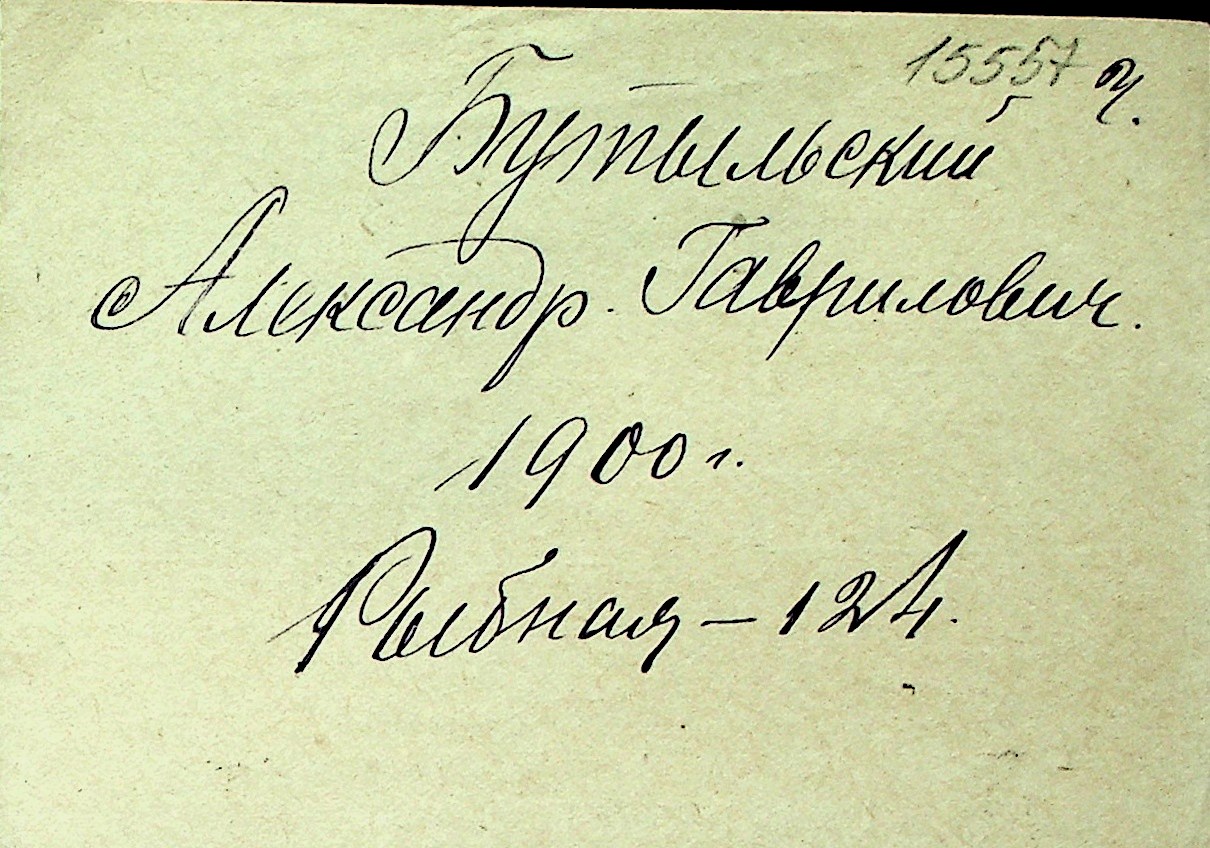 15557 ч.
Бутыльский
Александр. Гаврилович.
1900 г.
Рыбная – 124.